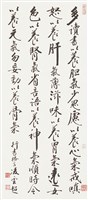 多讀書以養膽氣少思慮以養心氣戒嗔
怒以養肝氣薄滋味以養胃氣
色以養腎氣省言語以養神氣順時令
以養元氣以養骨氣